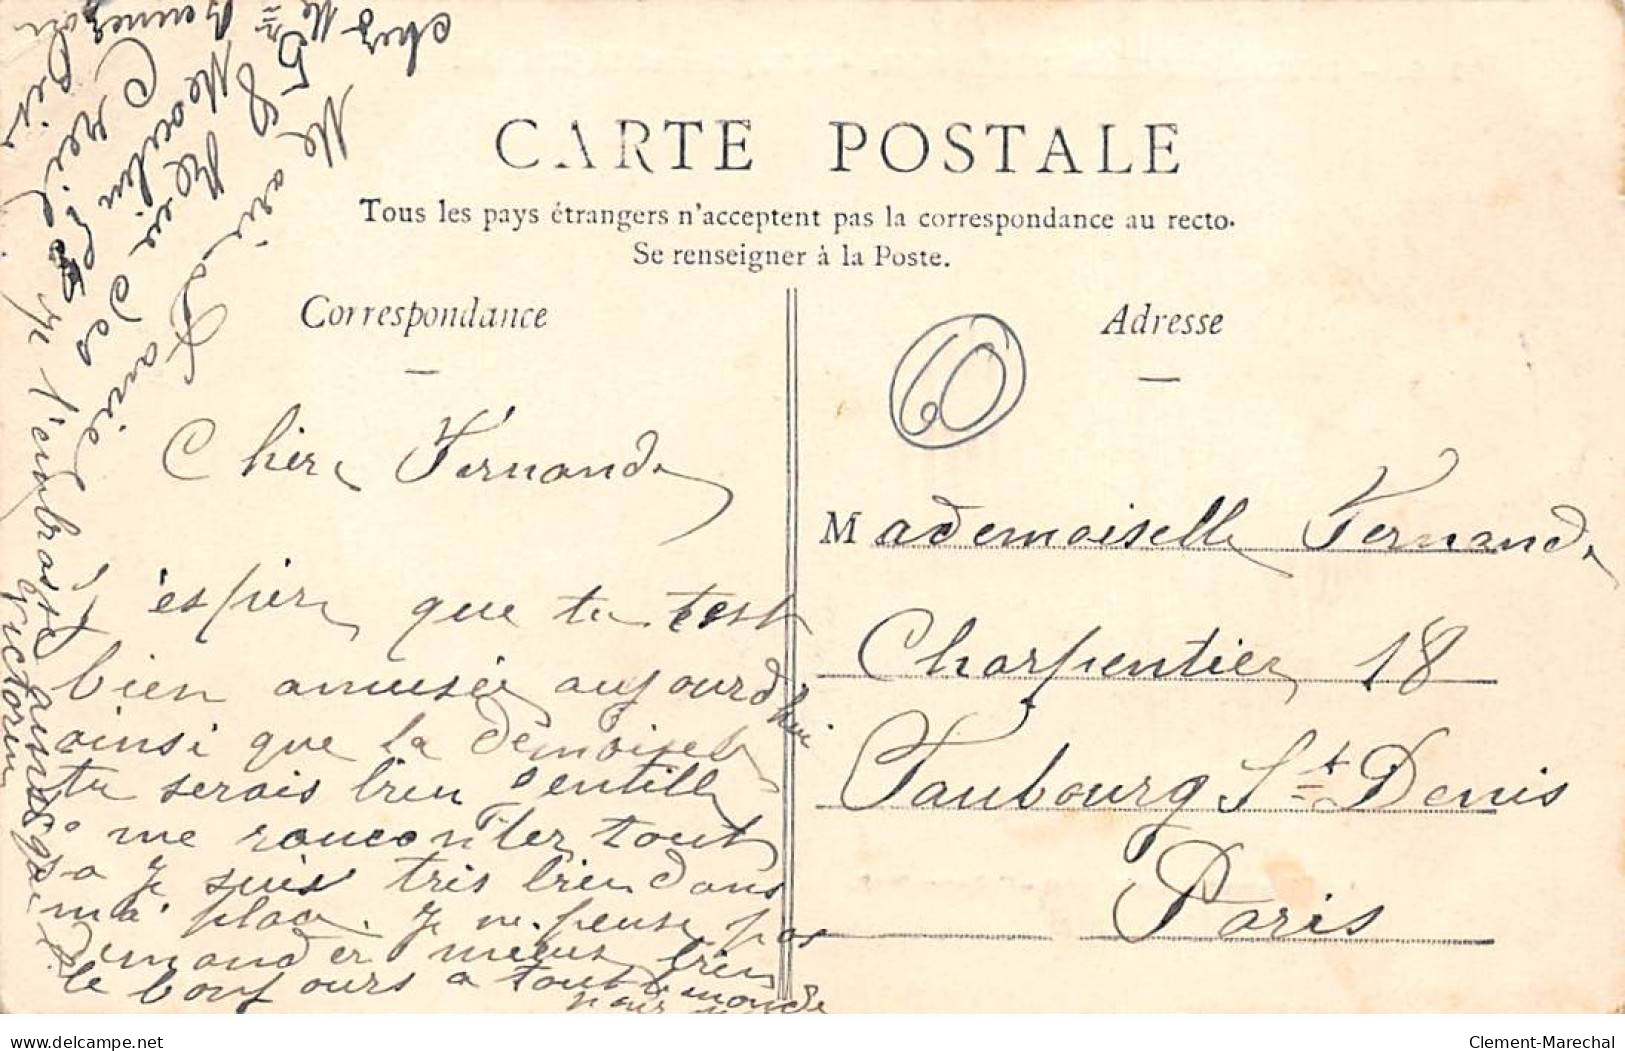 CARTE POSTALE
Tous les pays étrangers n'acceptent pas la correspondance au recto.
Se renseigner à la Poste.
Correspondance
Adresse
60
Chère Fernande
J'espère que tu test
bien amusée aujourd'hui
ainsi que la demoiselle
tu serais bien gentille
me raconter tout
sa Je suis très bien dans
ma place. Je ne peuse pas
demander mieux bien
le bonjours a tout le monde
Je t'embrasse ainsi que
Victorine
Marie
58 Rue des
Moulin
Creil
Oise
chez Me
Mademoiselle Fernande
Charpentier 18
Faubourg St Denis
Paris
delcampe.net
Clement-Marechal